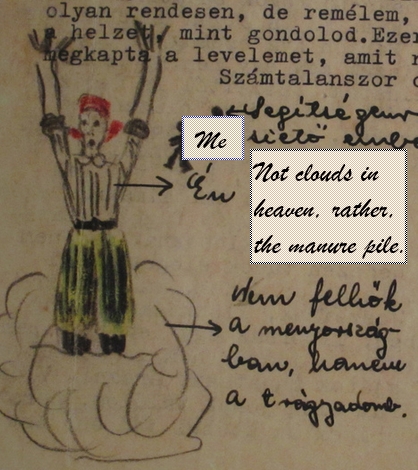 olyan rendesen, de remélem,
a helzet, mint gondolod.Ezer
megkapta a levelemet, amit
Számtalanszor
Me
Én
Not clouds in
heaven, rather,
the manure pile.
Nem felhők
a menyország-
ban, hanem
a trágyadomb.